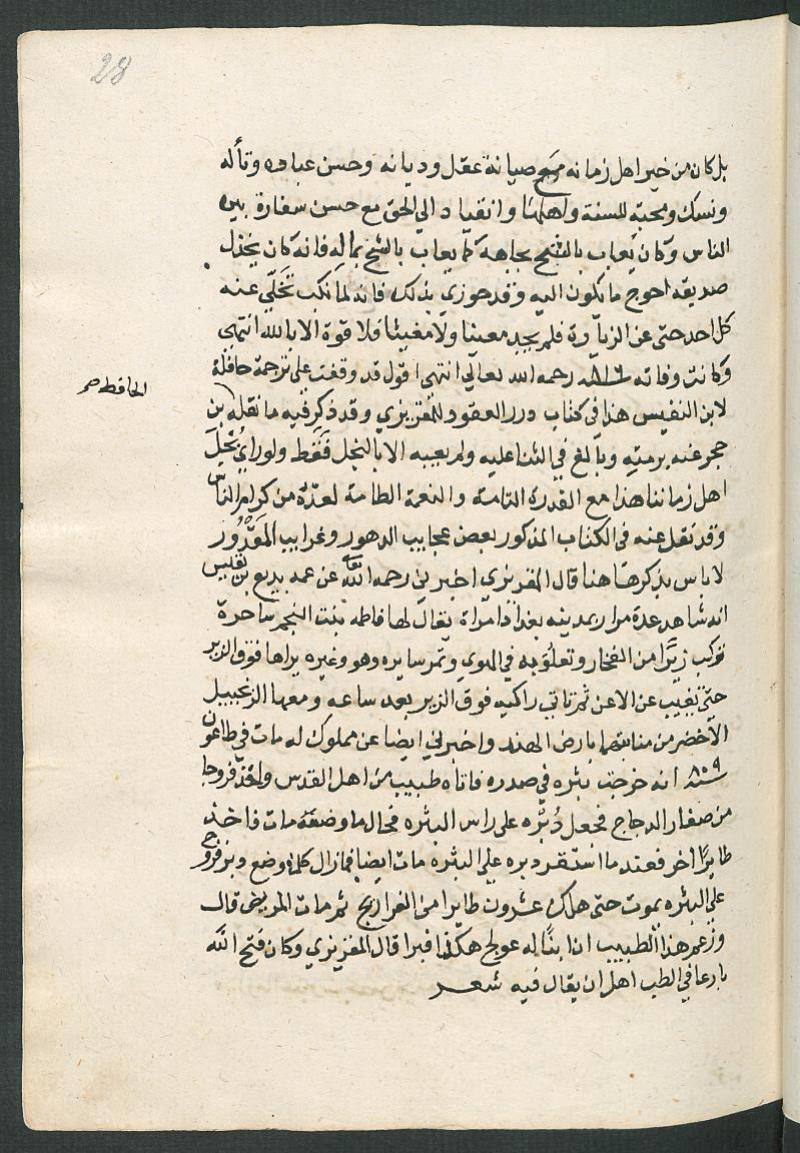 28
بل كان من خير اهل زمانه مع صيانة عقل وديانه وحسن عباده وتأله
ونسك ومحبة للسنة ولاهلها وانقياد الي الحق مع حسن سفارة بين
الناس وكان يعاب بالشح بجاهه كما يعاب بالشح بماله فانه كان يخذل
صديقه احوج ما يكون اليه وقد جوزي بذلك فانه لما نكب تخلي عنه
كل احد حتى عن الزيارة فلم يجد معينا ولا مغيثا فلا قوة الا بالله انتهي
وكانت وفاته سنة ٨١٦ رحمه الله تعالي انتهي اقول قد وقفت على ترجمة حافلة
لابن النفيس هذا في كتاب درر العقود للمقريزي وقد ذكر فيه ما نقله بن
الحافظ صح
حجر عنه برمته وبالغ في الثنا عليه ولم يعيبه الا بالبخل فقط ولو راي بخل
اهل زماننا هذا مع القدرة التامة والنعمة الطامة لعده من كرام الناس
وقد نقل عنه في الكتاب المذكور بعض عجايب الدهور وغرايب المقدور
لا باس بذكرها هنا قال المقريزي اخبرني رحمه الله تعالى عن عمه بديع بن نفيس
انه شاهد عدة مرار بمدينه بغداد امراة يقال لها فاطمه بنت النجم ساحرة
تركب زيرًا من الفخار وتعلو به في الهوي وتمر سايره وهو وغيره يراها فوق الزير
حتى تغيب عن الاعن ثم تاتي راكبه فوق الزير بعد ساعه ومعها الزنجبيل
الاخضر من منابتها بارض الهند واخبرني ايضا عن مملوك له مات في طاعون
سنة ٨٠٩ انه خرجت بثره في صدره فاتاه طبيب من اهل القدس واخذ فروجا
من صغار الدجاج فجعل دبره على راس البثره فحال ما وضعه مات فاخذ
طايرًا اخر فعند ما استقر دبره علي البثره مات ايضا فما زال كلما وضع دبر فروج
علي البثره يموت حتى هلك عشرون طايرا من الفراريج ثم مات المريض قال
وزعم هذا الطبيب ان ابنًا له عولج هكذا فبرا قال المقريزي وكان فتح الله
بارعا في الطب اهل ان يقال فيه شعر